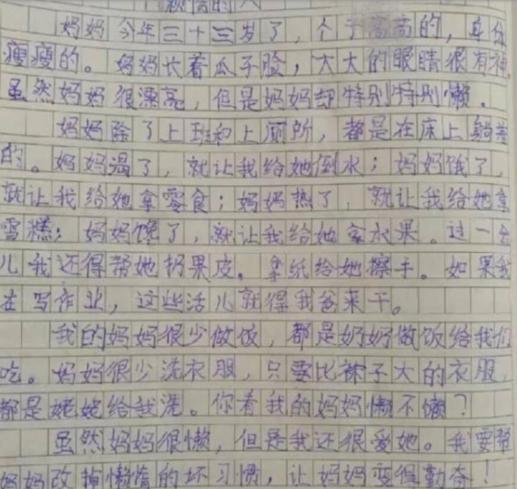 懒惰的人
妈妈今年三十三岁了，个子高高的，身体
瘦瘦的。妈妈长着瓜子脸，大大的眼睛很有神
虽然妈妈很漂亮，但是妈妈却特别特别懒。
妈妈除了上班和上厕所，都是在床上躺着
的。妈妈渴了，就让我给她倒水；妈妈饿了，
就让我给她拿零食；妈妈热了，就让我给她拿
雪糕；妈妈馋了，就让我给她拿水果。过一会
儿我还得帮她扔果皮。拿纸给她擦手。如果我
在写作业，这些活儿就得我爸来干。
我的妈妈很少做饭，都是奶奶做饭给我们
吃。妈妈很少洗衣服，只要比袜子大的衣服，
都是姥姥给我洗。你看我的妈妈懒不懒？
虽然妈妈很懒，但是我还很爱她。我要帮
妈妈改掉懒惰的坏习惯，让妈妈变得勤奋！